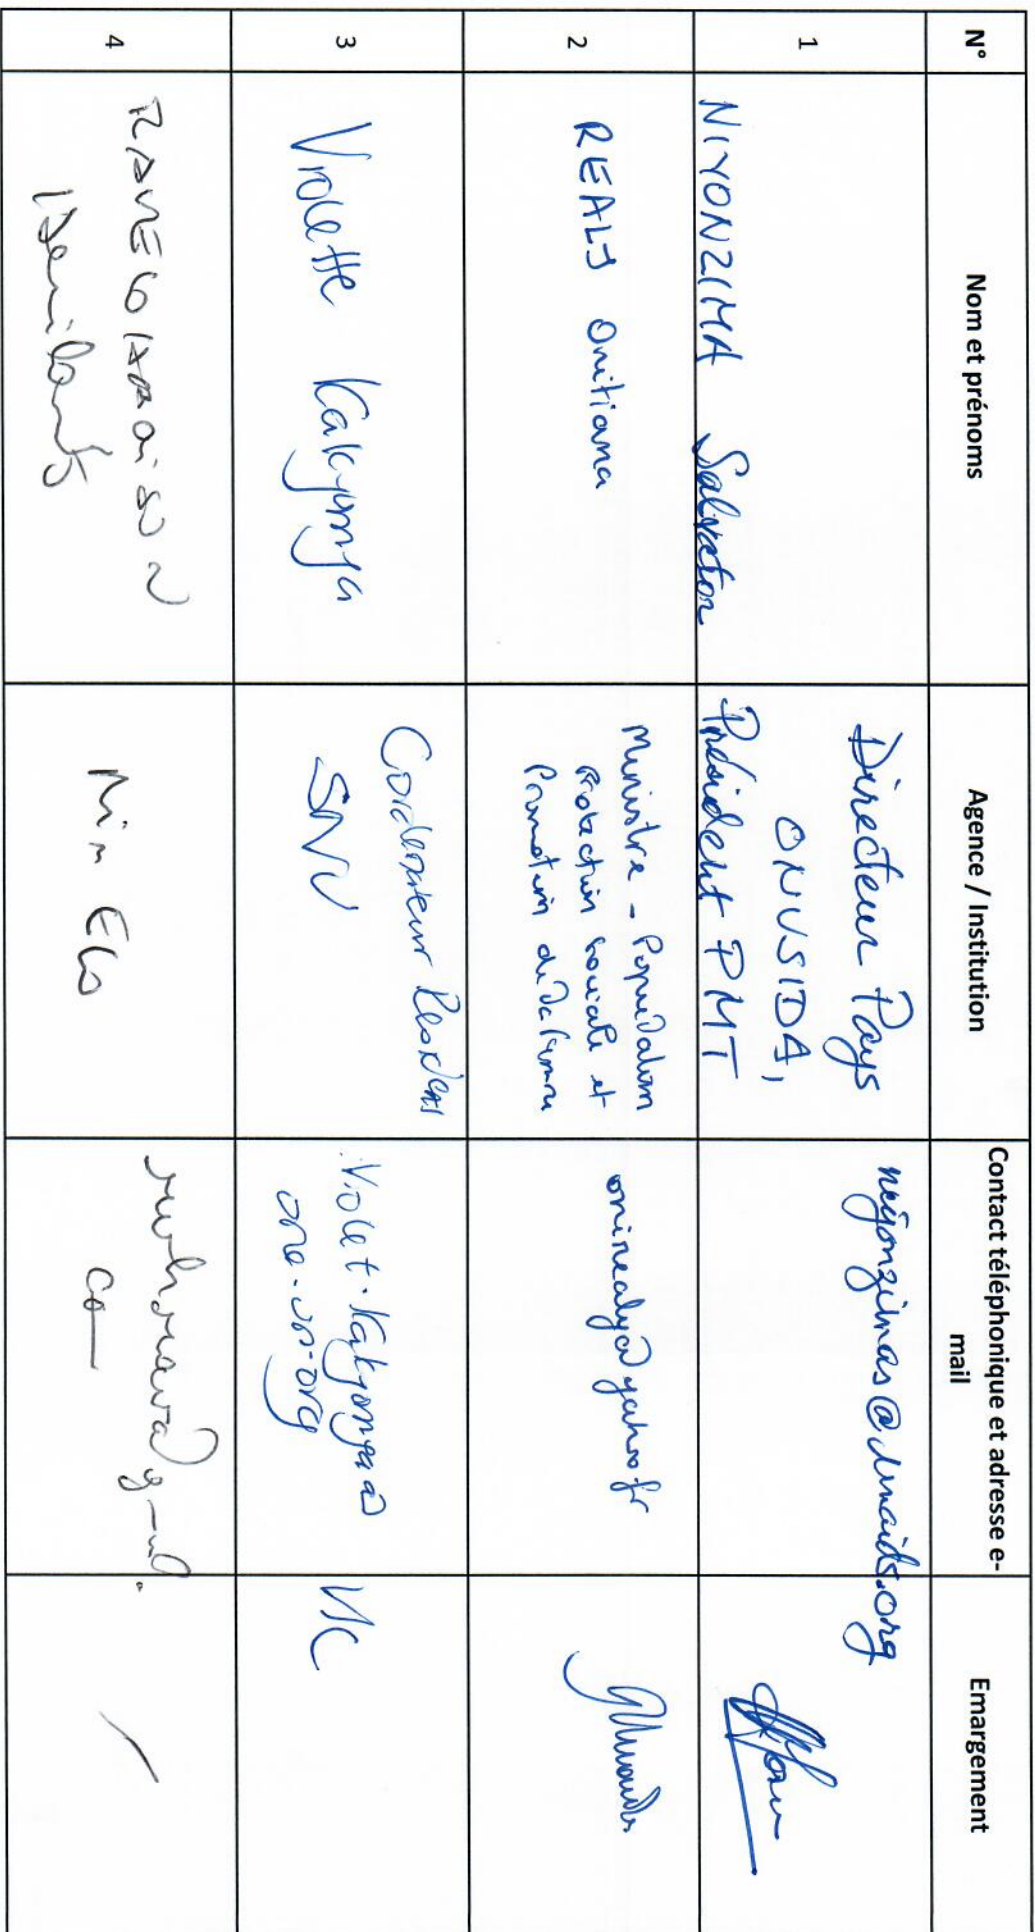 N°
Nom et prénoms
Agence / Institution
Contact téléphonique et adresse e-
mail
Emargement
1
NIYONZIMA Salvator
Directeur Pays
ONUSIDA,
Président PMT
niyonzimas@unaids.org
2
REALY Onitiana
Ministre - Population
Protection sociale et
Promotion de la femme
onirealy@yahoo.fr
3
Violette Kakyomya
Coordonateur Resident
SNU
Violet.Kakyomya@
one.un.org
VK
4
Min